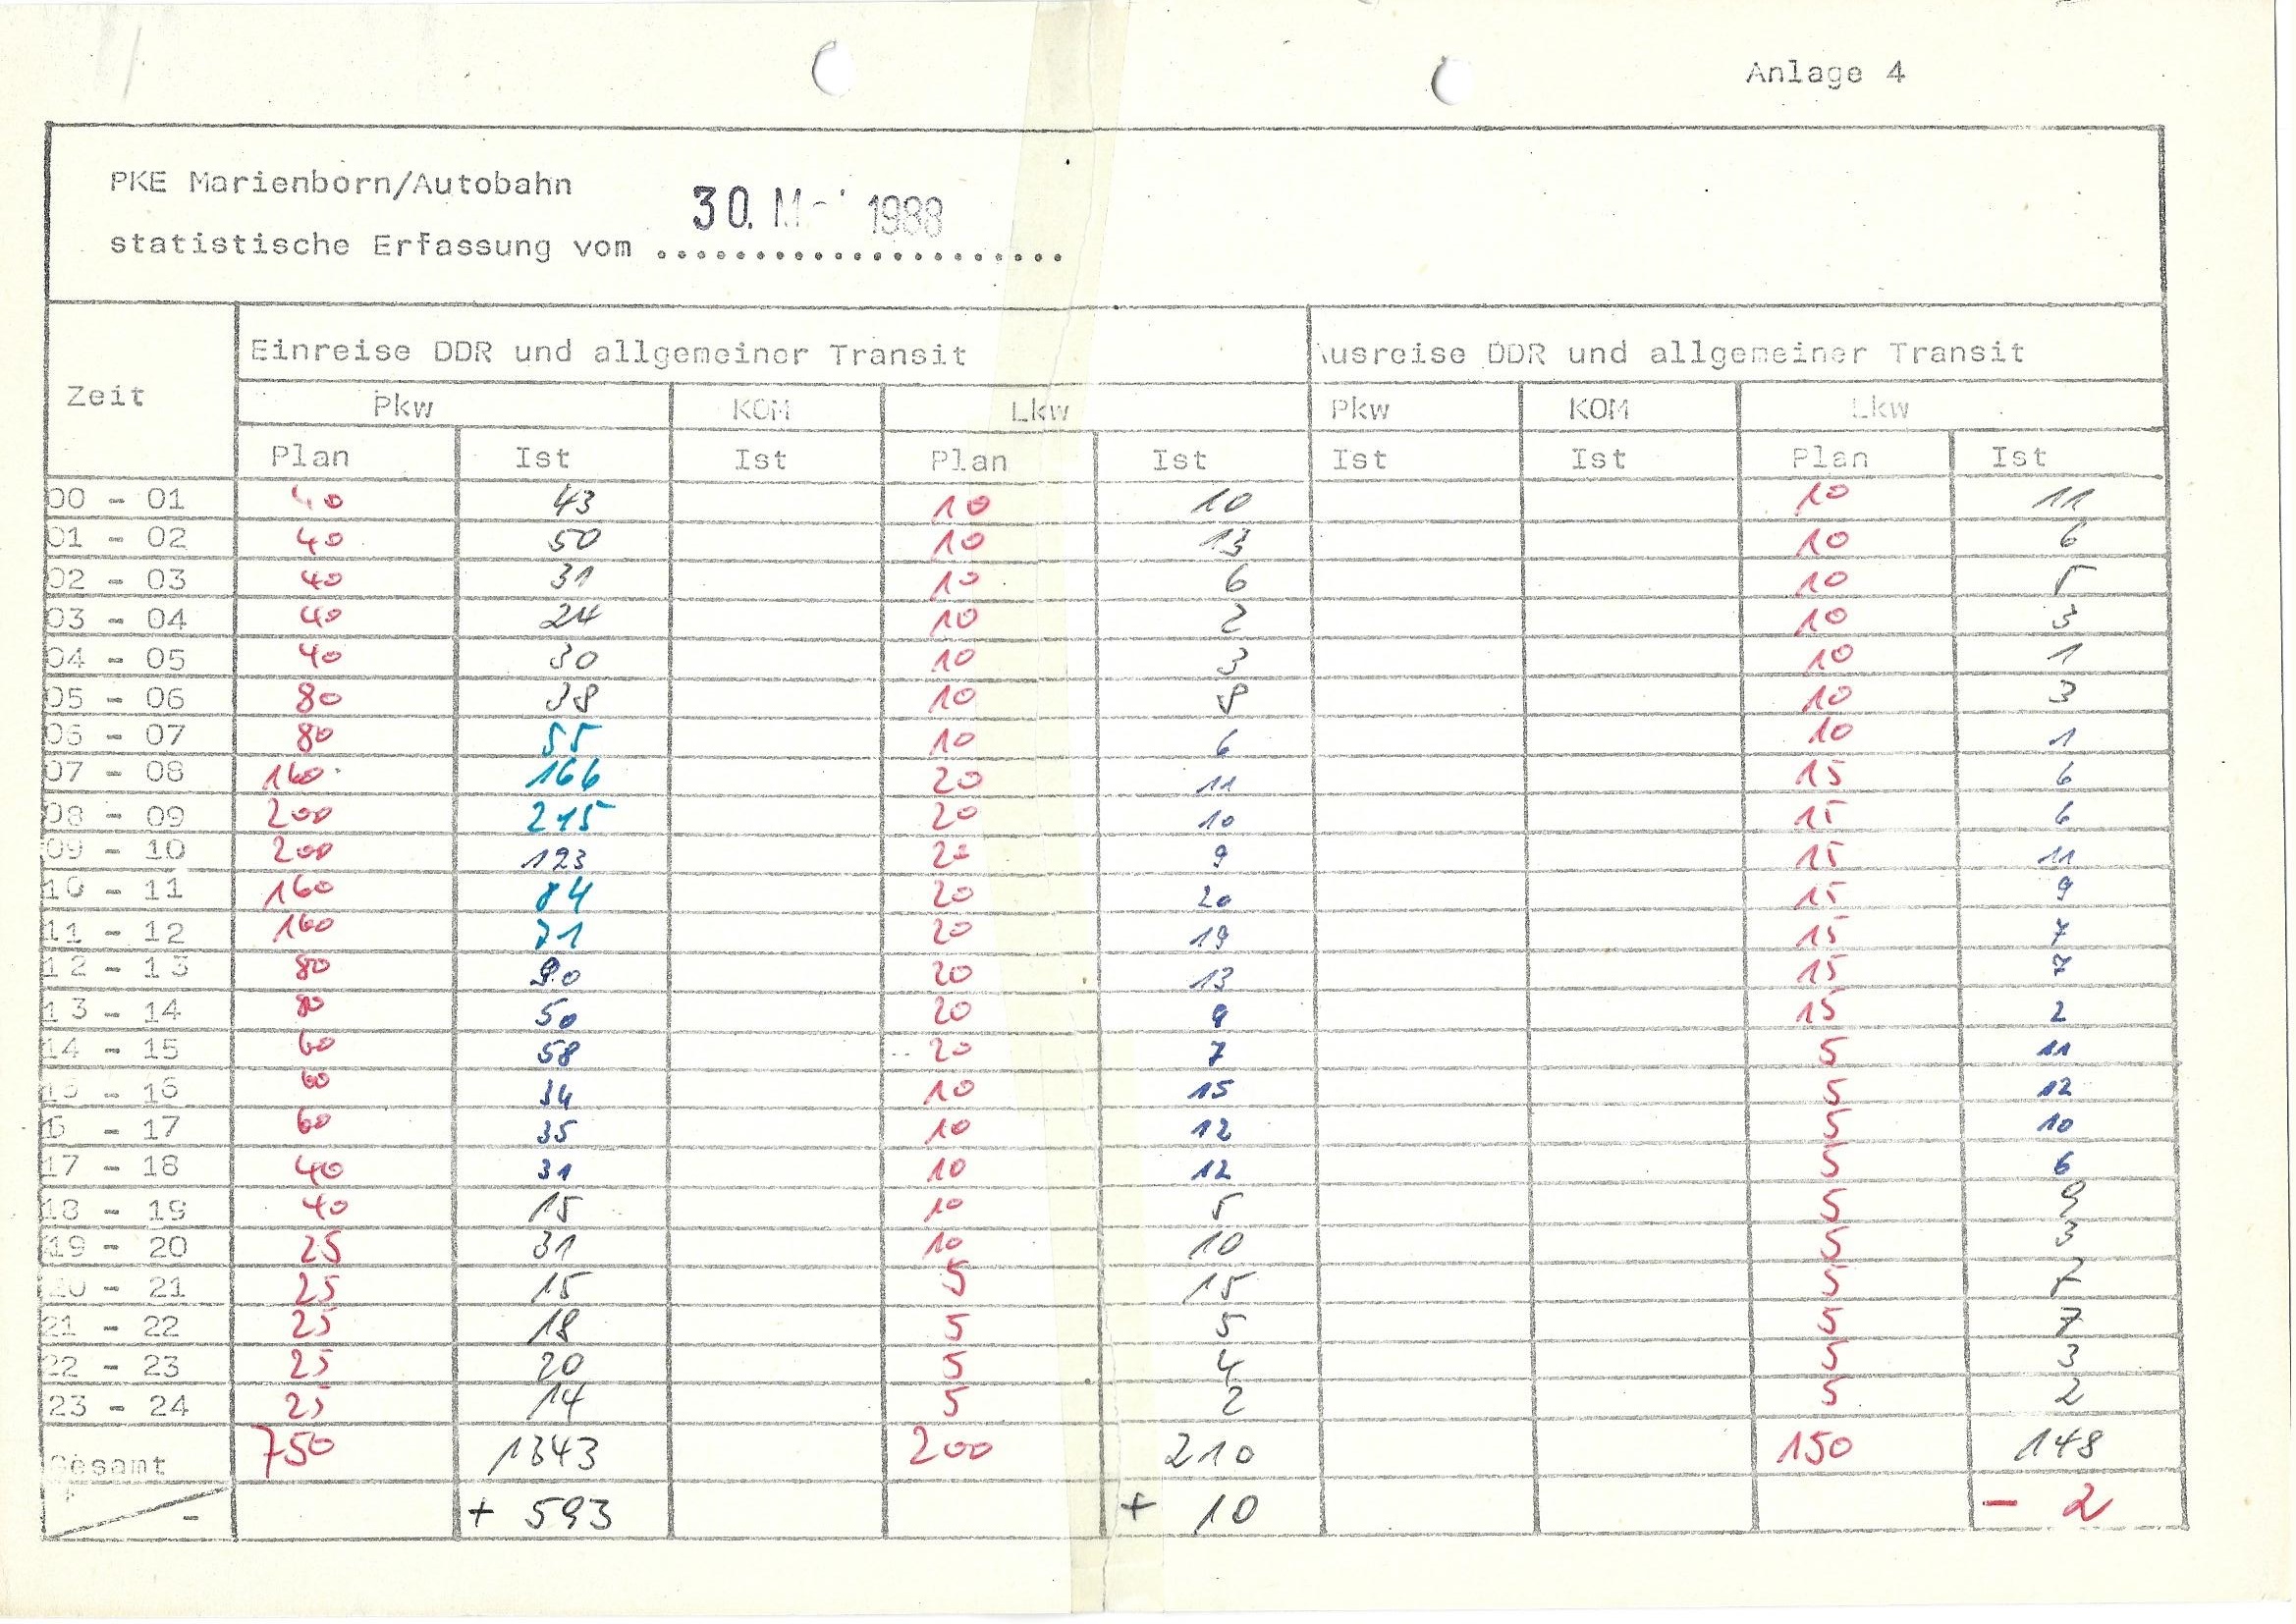 Anlage 4
PKE Marienborn/Autobahn
30. Mai 1988
statistische Erfassung vom .....................
Zeit
Einreise DDR und allgemeiner Transit
Ausreise DDR und allgemeiner Transit
Pkw KOM Lkw Pkw KOM Lkw
Plan Ist Ist Plan Ist Ist Ist Plan Ist
00 - 01 40 43 10 10 10 11
01 - 02 40 50 10 13 10 6
02 - 03 40 31 10 6 10 5
03 - 04 40 24 10 2 10 3
04 - 05 40 30 10 3 10 1
05 - 06 80 38 10 8 10 3
06 - 07 80 55 10 6 10 1
07 - 08 160 166 20 11 15 6
08 - 09 200 215 20 10 15 6
09 - 10 200 123 20 9 15 11
10 - 11 160 84 20 20 15 9
11 - 12 160 71 20 19 15 7
12 - 13 80 90 20 13 15 7
13 - 14 80 50 20 9 15 2
14 - 15 60 58 20 7 5 11
15 - 16 60 34 10 15 5 12
16 - 17 60 35 10 12 5 10
17 - 18 40 31 10 12 5 6
18 - 19 40 15 10 5 5 9
19 - 20 25 31 10 10 5 3
20 - 21 25 15 5 15 5 7
21 - 22 25 18 5 5 5 7
22 - 23 25 20 5 4 5 3
23 - 24 25 14 5 2 5 2
Gesamt 750 1343 200 210 150 148
+ / - + 593 + 10 - 2